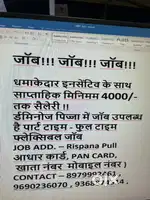 जॉब!!! जॉब!!! जॉब!!!
धमाकेदार इनसेंटिव के साथ
साप्ताहिक मिनिमम 4000/-
तक सैलेरी !!
डोमिनोज पिज्जा में जॉब उपलब्ध
है पार्ट टाइम - फुल टाइम
फ्लेक्सिबल जॉब
JOB ADD. – Rispana Pull
आधार कार्ड, PAN CARD,
खाता नंबर मोबाइल नंबर )
CONTACT –
9690236070 ,
olx